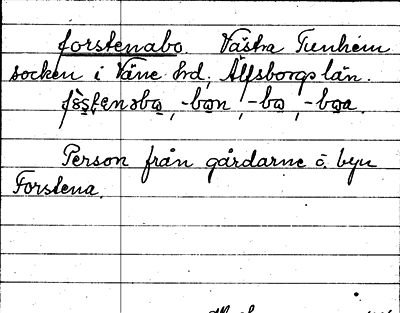 forstenabo. Västra Tunhem
socken i Väne hrd, Älfsborgs län.
-bon, -bo, -boa.
Person från gårdarne o. byn
Forstena.